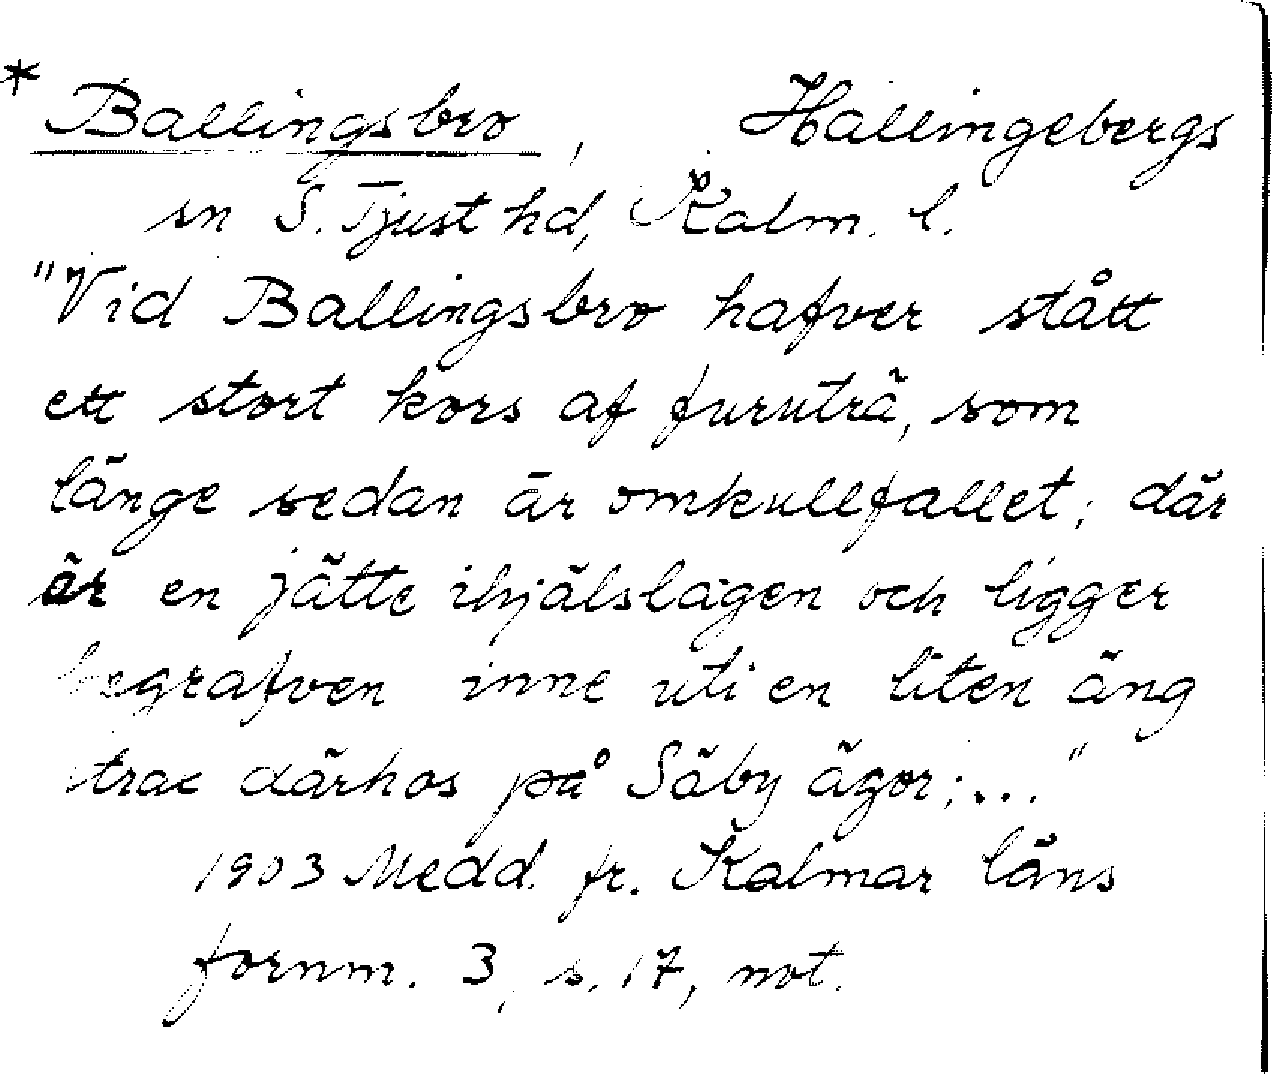 * Ballingsbro, Hallingebergs
sn S. Tjust hd, Kalm. l.
"Vid Ballingsbro hafver stått
ett stort kors af furuträ, som
länge sedan är omkullfallet; där
är en jätte ihjälslagen och ligger
begrafven inne uti en liten äng
strax därhos på Säby ägor;..."
1903 Medd. fr. Kalmar läns
fornm. 3, s. 17, not.